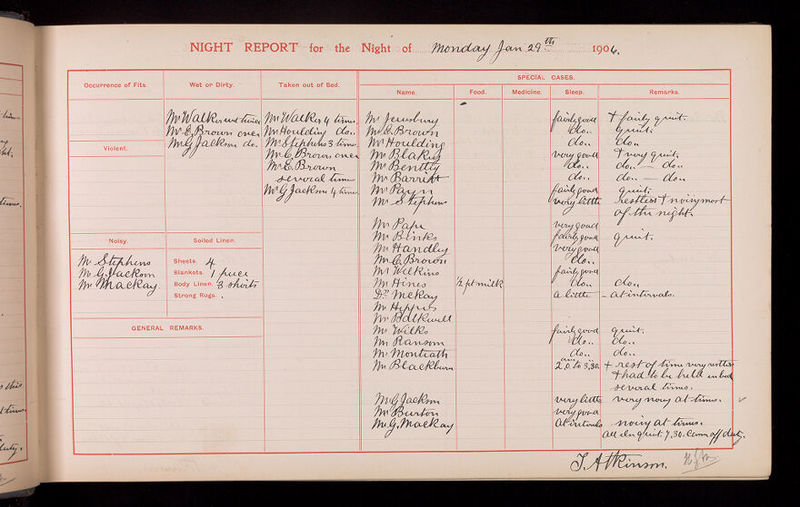 NIGHT REPORT for the Night of Monday Jan 29th 1906.
SPECIAL CASES.
Occurrence of Fits.
Wet or Dirty.
Taken out of Bed.
Name.
Food.
Medicine.
Sleep.
Remarks.
Mr Walker wet twice
Mr E Brown once
Mr G Jackson do.
Mr Walker 4 times
Mr Houlding do..
Mr Stephens 3 times
Mr C Brown once
Mr E. Brown
several times
Mr G Jackson 4 times
Violent.
Noisy.
Mr Stephens
Mr G. Jackson
Mr Mackay
Soiled Linen.
Sheets. 4
Blankets. 1 piece
Body Linen. 3 shirts
Strong Rugs. .
GENERAL REMARKS.
Mr Jewsbury fairly good + fairly quiet.
Mr E. Brown do.. quiet..
Mr Houlding do.. do..
Mr Blakey very good + very quiet.
Mr Bentley do.. do.. — do..
Mr Barratt do.. do.. — do..
Mr Payn fairly good quiet.
Mr S Stephens very little restless + noisy most
of the night.
Mr Pape very good
Mr Binks fairly good quiet.
Mr Handley very good
Mr C. Brown do..
Mr Wilkins fairly good
Mr Hines ½ pt milk do.. do..
Dr McKay a little — at intervals.
Mr
Mr
Mr Wilks fairly good quiet.
Mr Ransom do.. do..
Mr Monteath do.. do..
Mr Blackburn 2.0. to 3.30. + rest of time very restless
+ had to be held in bed
several times.
Mr G Jackson very little very noisy at times.
Mr Burton very good
Mr G. Mackay at intervals noisy at times.
all in quiet 7.30. Came off duty.
J. Atkinson.